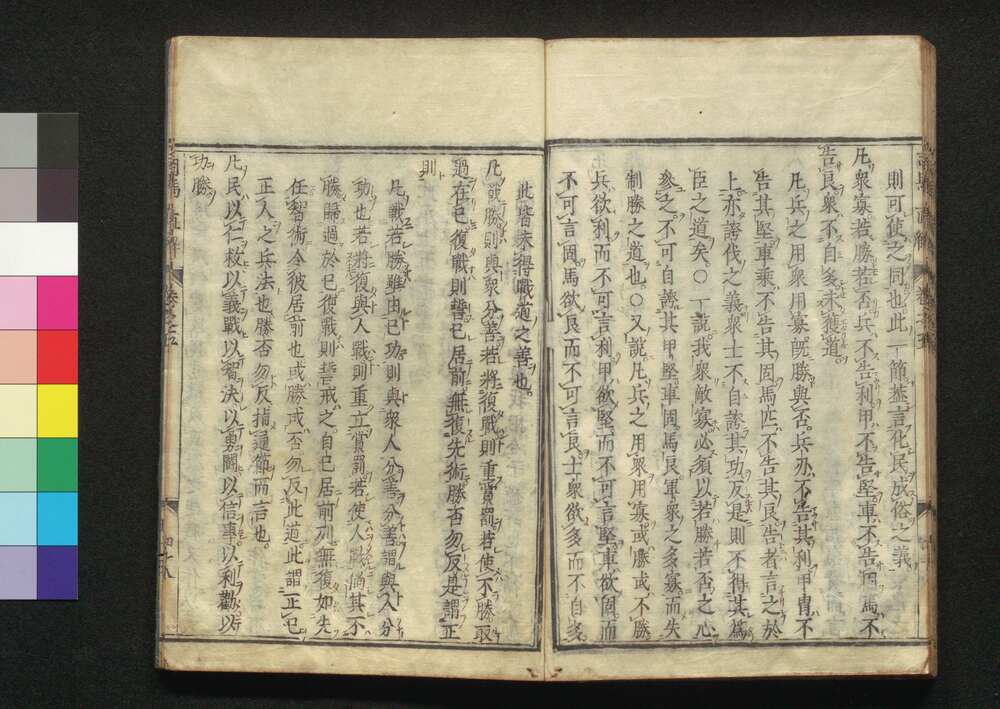 則可使之同也此一節蓋言化民成俗之義
凡衆寡若勝若否兵不告利甲不告堅車不告固馬不
告良衆不自多未獲道
凡兵之用衆用寡旣勝與否兵刃不告其利甲冑不
告其堅車乘不告其固馬匹不告其良告者言之於
上亦誇伐之義衆士不自誇其功反是則不得其爲
臣之道矣○一說我衆敵寡必須以若勝若否之心
參之不可自誇其甲堅車固馬良軍衆之多寡而失
制勝之道也○又說凡兵之用衆用寡或勝或不勝
兵欲利而不可言利甲欲堅而不可言堅車欲固而
不可言固馬欲良而不可言良士衆欲多而不自多
此皆未得戰道之善也
凡戰勝則與衆分善若將復戰則重賞罰若使不勝取
過在己復戰則誓己居前無復先術勝否勿反是謂正
則
凡戰若勝雖由己功則與衆人分善分善謂與人分
功也若將復與人戰則重立賞罰若使人戰倘其不
勝歸過於己復戰則誓戒之自己居前列無復如先
任智術令彼居前也或勝或否勿反此道此謂正己
正人之兵法也勝否勿反捕通節而言也
凡民以仁救以義戰以智決以勇鬬以信專以利勸以
功勝